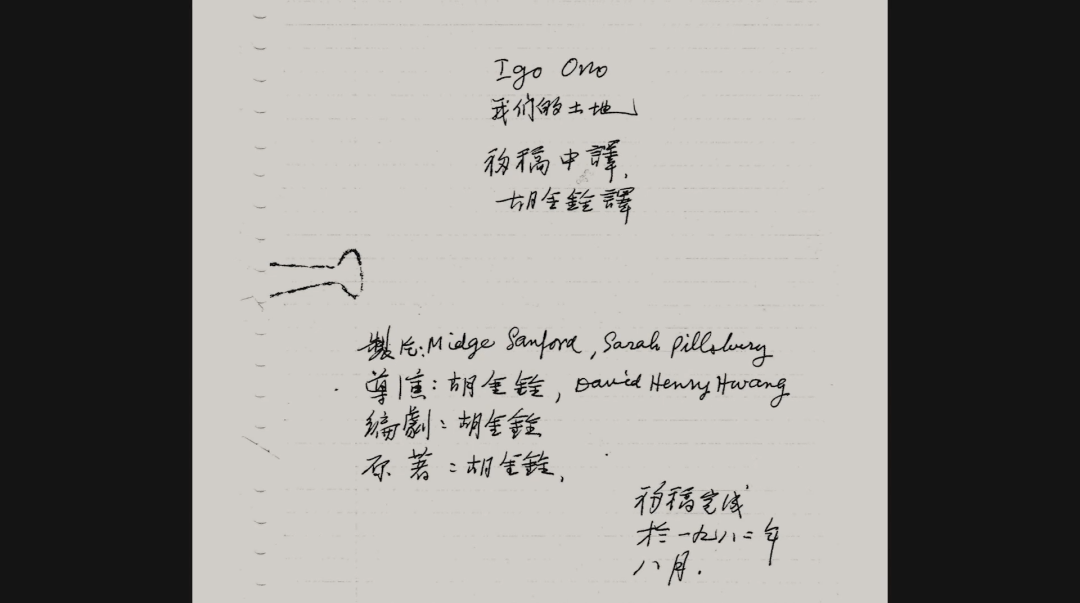 Igo Ono
我们的土地
初稿中譯,
胡金銓譯
製片: Midge Sanford, Sarah Pillsbury
導演: 胡金銓, David Henry Hwang
編劇: 胡金銓
原著: 胡金銓,
初稿完成
於一九八二年
八月.